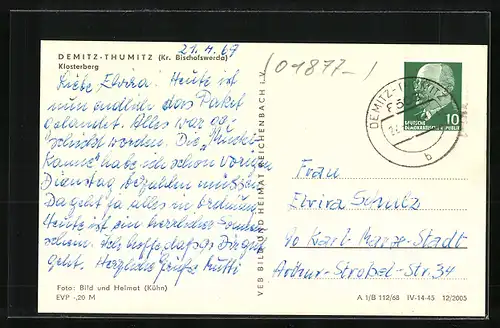 DEMITZ-THUMITZ (Kr. Bischofswerda)
Klosterberg
21.4.69
Liebe Elvira! Heute ist
nun endlich das Paket
gelandet. Alles war ge-
schickt worden. Die
Kanne" habe ich schon vorigen
Dienstag bezahlen müssen.
Da geht ja alles in Ordnung.
Heute ist ein herrlicher Sonnen-
schein. Ich hoffe, daß es Dir gut
geht. Herzliche Grüße Mutti
Foto: Bild und Heimat (Kühn)
EVP -,20 M
VEB BILD UND HEIMAT REICHENBACH i. V.
(01877-)
DEMITZ-THUMITZ
b
10
DEUTSCHE
DEMOKRATISCHE REPUBLIK
Frau
Elvira Schulz
90 Karl-Marx-Stadt
Arthur-Strobel-Str. 34
A 1/B 112/68 IV-14-45 12/2005